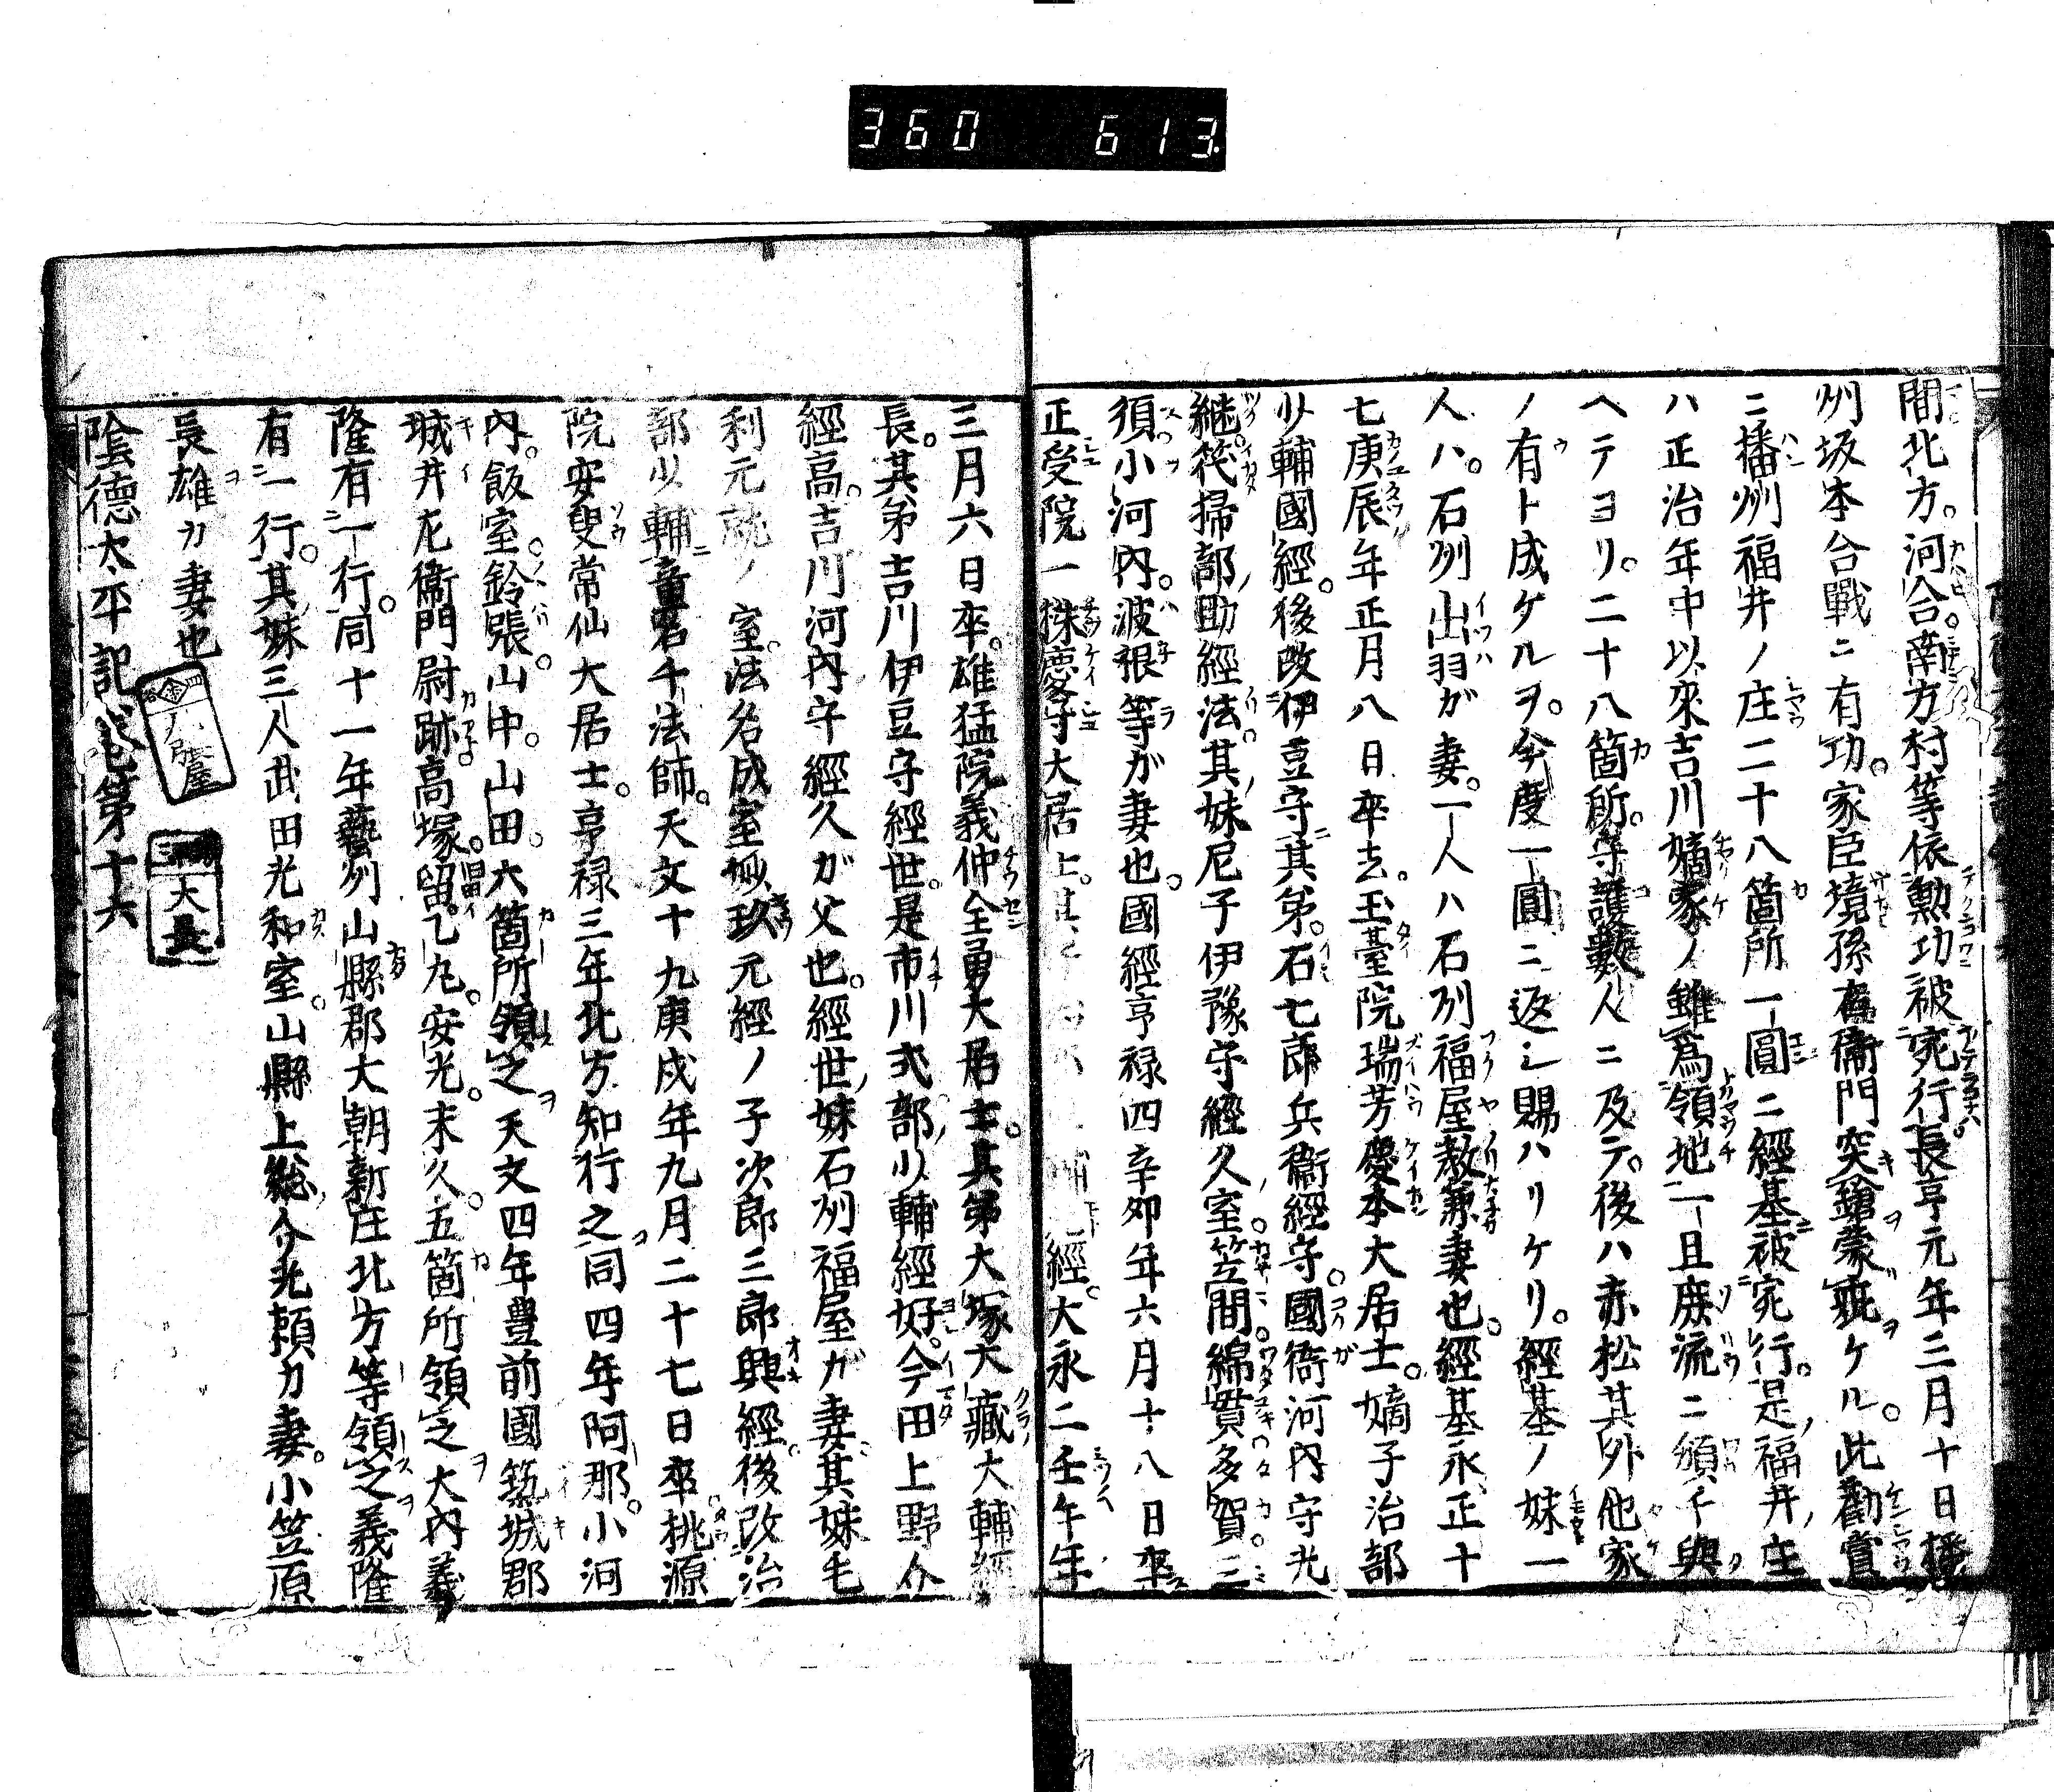 360 613
間北方。河合。南方村等依勲功被宛行。長享元年三月十日播
州坂本合戰ニ有功。家臣境孫右衞門突鎗蒙疵ケル。此勸賞
ニ播州福井ノ庄二十八箇所一圓ニ經基被宛行。是福井庄
ハ正治年中以來吉川嫡家ノ雖爲領地一且庶流ニ頒チ與
ヘテヨリ。二十八箇所。守護數人ニ及テ。後ハ赤松其外他家
ノ有ト成ケルヲ。今度一圓ニ返シ賜ハリケリ。經基ノ妹一
人ハ。石州出羽が妻。一人ハ石州福屋敖兼妻也。經基永正十
七庚辰年正月八日卒去。玉臺院瑞芳慶本大居士。嫡子治部
少輔國經。後改伊豆守其弟。石七郎兵衞經守。國衙河内守光
継。筏掃部助經法。其妹尼子伊豫守經久室。笠間。綿貫多賀。三
須。小河内。波根等が妻也。國經亨禄四辛卯年六月十八日卒
正受院一株慶守大居士。其 經。大永二壬午年
三月六日卒。雄猛院義仲全勇大居士。其弟大塚大藏大輔經
長。其弟吉川伊豆守經世。是市川式部少輔經好。今田上野介
經高。吉川河内守經久が父也。經世妹石州福屋が妻。其妹毛
利元就ノ室。法名成室妙玖元經ノ子次郎三郎興經。後改治
部少輔童名千法師。天文十九庚戌年九月二十七日卒桃源
院安叟常仙大居士。亨禄三年北方知行之同四年阿那。小河
内。飯室。鈴張。山中。山田六箇所領之天文四年豊前國築城郡
城井左衞門尉跡高塚。留。乙丸。安光。末久。五箇所領之大内義
隆有一行。同十一年藝州山縣郡大朝新庄北方等領之義隆
有一行。其妹三人武田光和室。山縣上総介光頼カ妻。小笠原
長雄カ妻也
陰德太平記卷第十六
大長